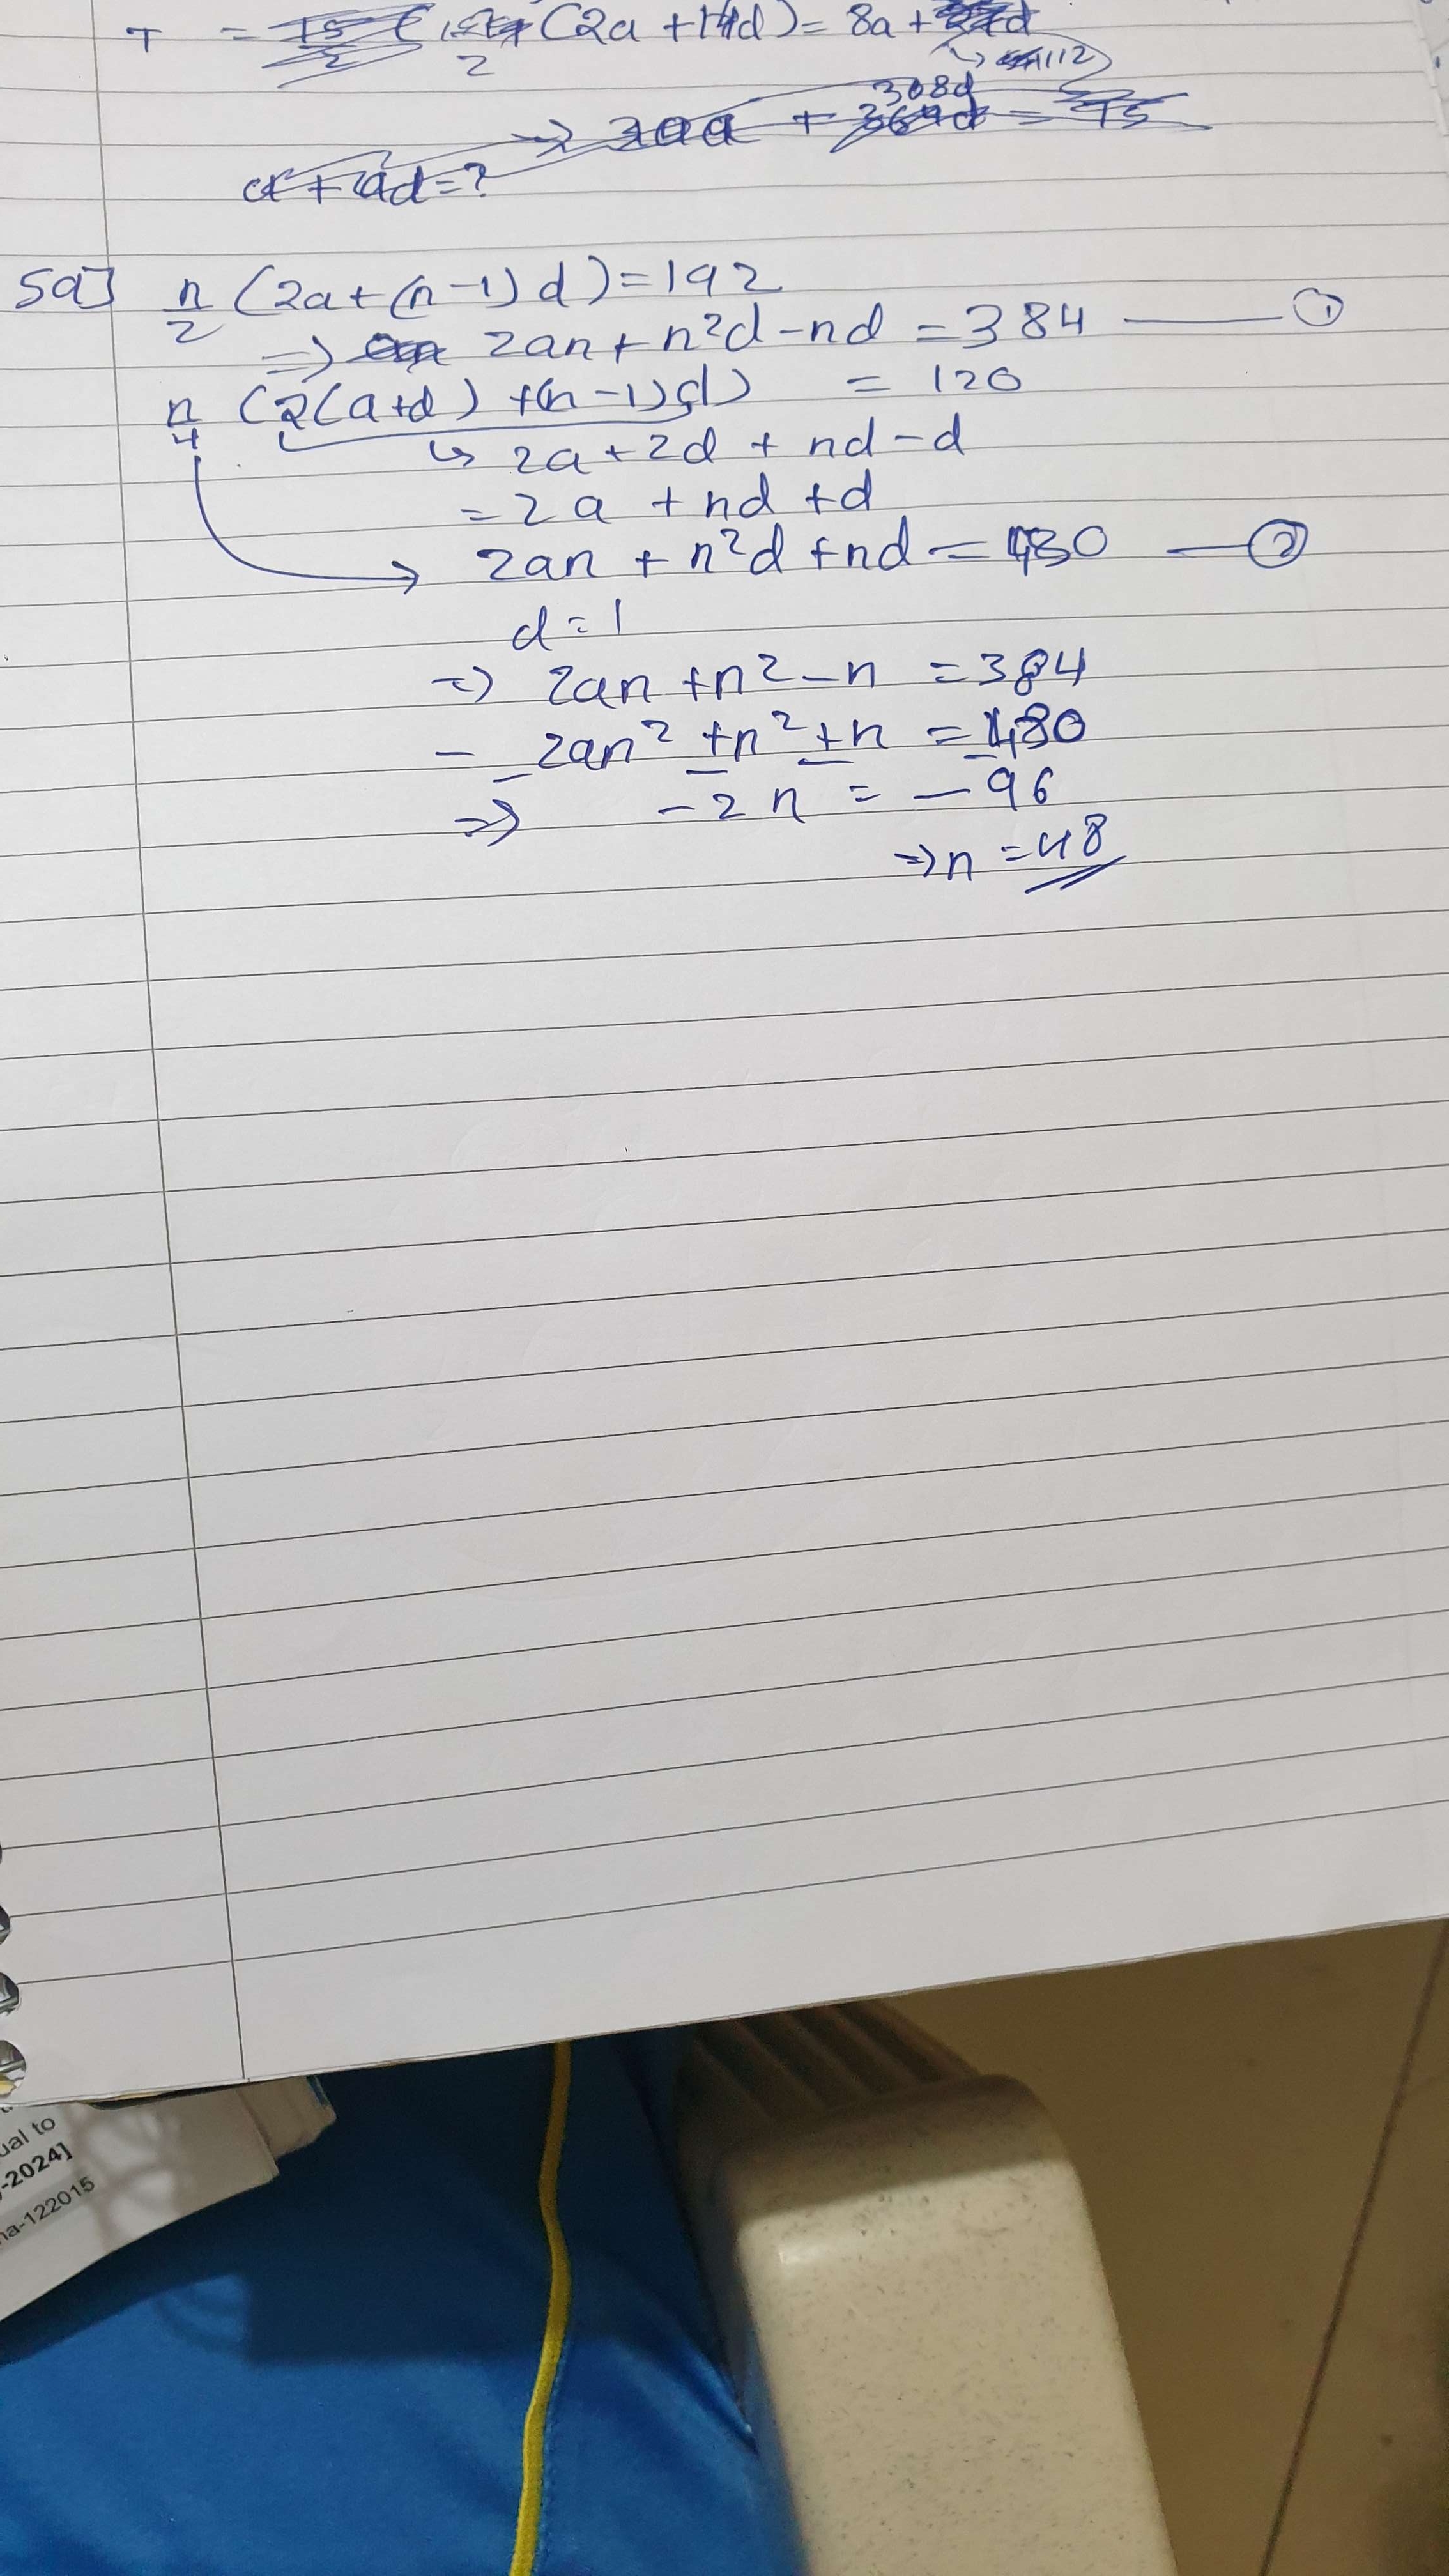 T = (2a + 14d) = 8a + d
2
112
308d
a + 9d = ?
59] n/2 (2a + (n-1) d) = 192
=> 2an + n²d - nd = 384 — ①
n/4 (2(a+d) + (n-1)d) = 120
↳ 2a + 2d + nd - d
= 2a + nd + d
→ 2an + n²d + nd = 480 — ②
d = 1
=> 2an + n² - n = 384
- 2an² + n² + n = 480
=> -2n = -96
=> n = 48
ual to
-2024]
na-122015